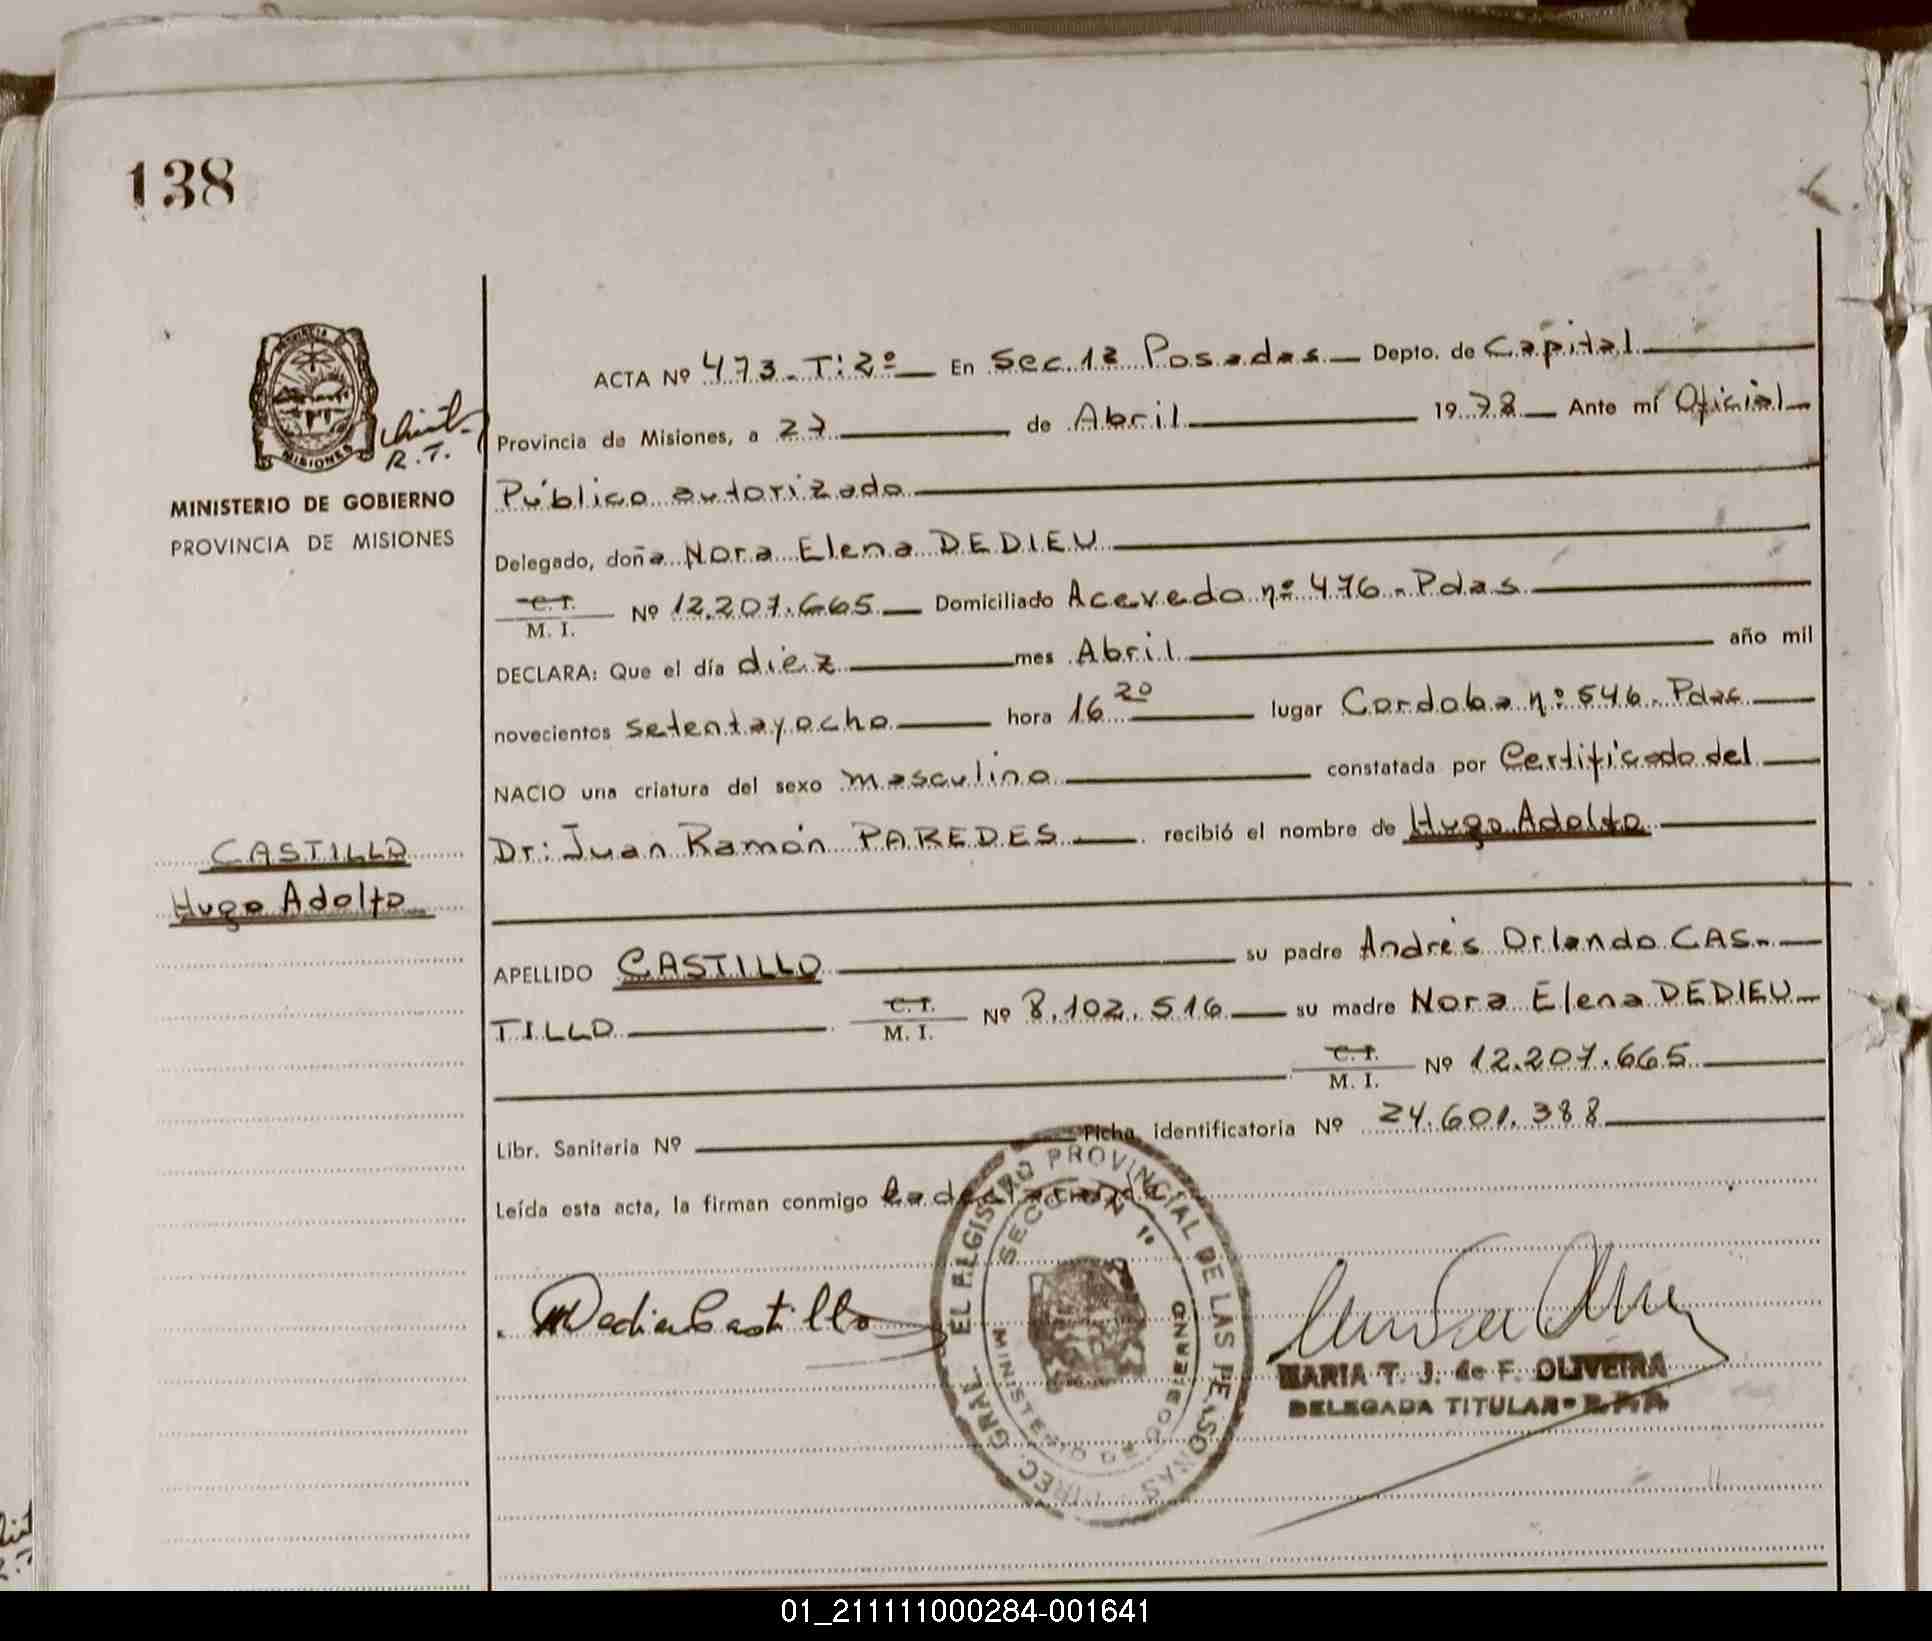 138
PROVINCIA
MISIONES
R.T.
MINISTERIO DE GOBIERNO
PROVINCIA DE MISIONES
ACTA Nº 473. T: 2º En Sec. 1ª Posadas Depto. de Capital
Provincia de Misiones, a 27 de Abril 1978 Ante mí Oficial
Público autorizado
Delegado, doña Nora Elena DEDIEU
C. I.
M. I. Nº 12.207.665 Domiciliado Acevedo nº 476. Pdas
DECLARA: Que el día diez mes Abril año mil
novecientos setentayocho hora 16 20 lugar Cordoba nº 546. Pdas
NACIO una criatura del sexo masculino constatada por Certificado del
Dr: Juan Ramón PAREDES recibió el nombre de Hugo Adolfo
CASTILLO
Hugo Adolfo
APELLIDO CASTILLO su padre Andrés Orlando CAS-
TILLO C. I. M. I. Nº 8.102.516 su madre Nora Elena DEDIEU
C. I. M. I. Nº 12.207.665
Libr. Sanitaria Nº Ficha identificatoria Nº 24.601.388
Leída esta acta, la firman conmigo la declarante
DIREC. GRAL. DEL REGISTRO PROVINCIAL DE LAS PERSONAS
SECCION 1º
MINISTERIO DE GOBIERNO
MARIA T. J. de F. OLIVEIRA
DELEGADA TITULAR R.P.P.
01_211111000284-001641